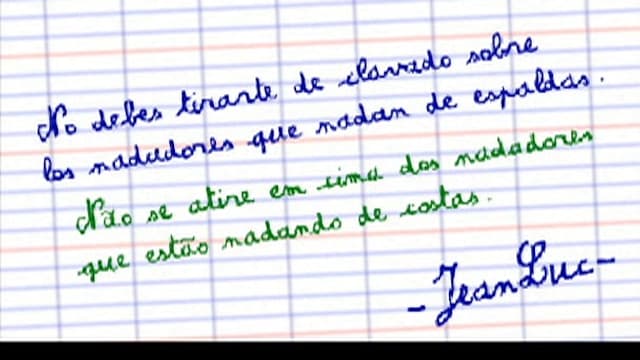 No debes tirarte de clavado sobre
los nadadores que nadan de espaldas.
Não se atire em cima dos nadadores
que estão nadando de costas.
- Jean Luc -